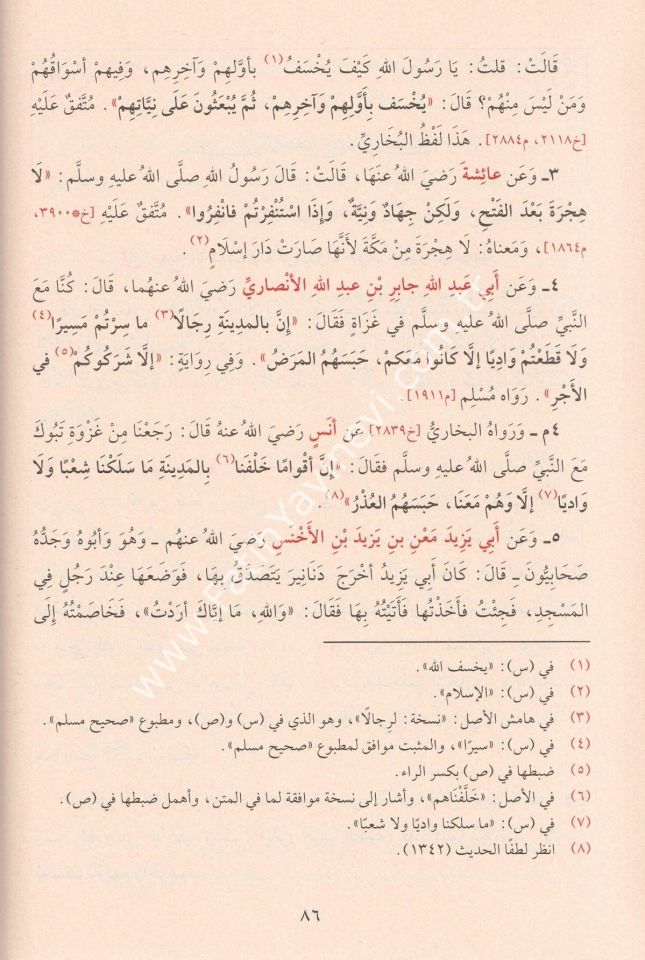 قَالَتْ: قلتُ: يَا رَسُولَ اللهِ كَيْفَ يُخْسَفُ(١) بأوَّلِهِمْ وَآخِرِهِم، وَفِيهِمْ أسْوَاقُهُمْ
وَمَنْ لَيْسَ مِنْهُمْ؟ قَالَ: «يُخْسَف بِأَوَّلِهِمْ وَآخِرِهِمْ، ثُمَّ يُبْعَثُونَ عَلَى نِيَّاتِهِمْ». مُتَّفقٌ عَلَيْهِ
[خ٢١١٨، م٢٨٨٤]. هَذَا لَفْظُ البُخَارِيِّ.
٣ـ وَعَن عائِشةَ رَضِيَ اللهُ عَنهَا، قَالَتْ: قَالَ رَسُولُ اللهِ صلَّى اللهُ عليهِ وسلَّم: «لَا
هِجْرَةَ بَعْدَ الفَتْحِ، وَلَكِنْ جِهَادٌ وَنِيَّةٌ، وَإِذَا اسْتُنْفِرْتُمْ فانْفِرُوا». مُتَّفقٌ عَلَيْهِ [خ*٣٩٠٠،
م١٨٦٤]، وَمَعناهُ: لَا هِجْرَةَ مِنْ مَكَّةَ لأَنَّهَا صَارَتْ دَارَ إسْلَامٍ(٢).
٤ـ وَعَن أَبِي عَبدِ اللهِ جابِرِ بْنِ عبدِ اللهِ الأنْصاريِّ رَضِيَ اللهُ عنهما، قَالَ: كُنَّا مَعَ
النَّبيِّ صلَّى اللهُ عليهِ وسلَّم في غَزَاةٍ فَقالَ: «إِنَّ بالمدِينَةِ رِجَالًا(٣) ما سِرْتُمْ مَسِيرًا(٤)
وَلَا قَطَعْتُمْ وَادِيًا إلَّا كَانُوا مَعَكمْ، حَبَسَهُمُ المَرَضُ». وَفي رِوَايَةٍ: «إلَّا شَرَكُوكُمْ(٥) في
الأَجْرِ». رَوَاه مُسْلِم [م١٩١١].
٤م ـ وَرَوَاهُ البخاريُّ [خ٢٨٣٩] عَن أنَسٍ رَضِيَ اللهُ عنهُ قَالَ: رَجَعْنَا مِنْ غَزْوَةِ تَبُوكَ
مَعَ النَّبيِّ صلَّى اللهُ عليهِ وسلَّم فقَالَ: «إنَّ أقْوامًا خَلْفَنا(٦) بِالمَدِينَةِ مَا سَلَكْنَا شِعْبًا وَلَا
وَاديًا(٧) إلَّا وَهُمْ مَعَنَا، حَبَسَهُمُ العُذْرُ»(٨).
٥ـ وَعَن أَبِي يَزِيدَ مَعْنِ بنِ يَزِيدَ بْنِ الأَخْنَسِ رَضِيَ اللهُ عنهُم ـ وَهُوَ وَأبُوهُ وَجَدُّهُ
صَحَابِيُّونَ ـ قَالَ: كَانَ أَبي يَزِيدُ أخْرَجَ دَنَانِيرَ يَتَصَدَّقُ بِهَا، فَوَضَعَهَا عِنْدَ رَجُلٍ في
المَسْجِدِ، فَجِئْتُ فأَخَذْتُها فَأَتَيْتُهُ بِهَا فَقَالَ: «وَاللهِ، مَا إيَّاكَ أرَدْتُ»، فَخَاصَمْتُهُ إلَى
(١) في (س): «يخسف الله».
(٢) في (س): «الإسلام».
(٣) في هامش الأصل: «نسخة: لرِجالًا»، وهو الذي في (س) و(ص)، ومطبوع «صحيح مسلم».
(٤) في (س): «سيرًا»، والمثبت موافق لمطبوع «صحيح مسلم».
(٥) ضبطها في (ص) بكسر الراء.
(٦) في الأصل: «خَلَّفْنَاهم»، وأشار إلى نسخة موافقة لما في المتن، وأهمل ضبطها في (ص).
(٧) في (س): «ما سلكنا واديًا ولا شعبًا».
(٨) انظر لطفًا الحديث (١٣٤٢).
٨٦
www.FecirYayinevi.com.tr